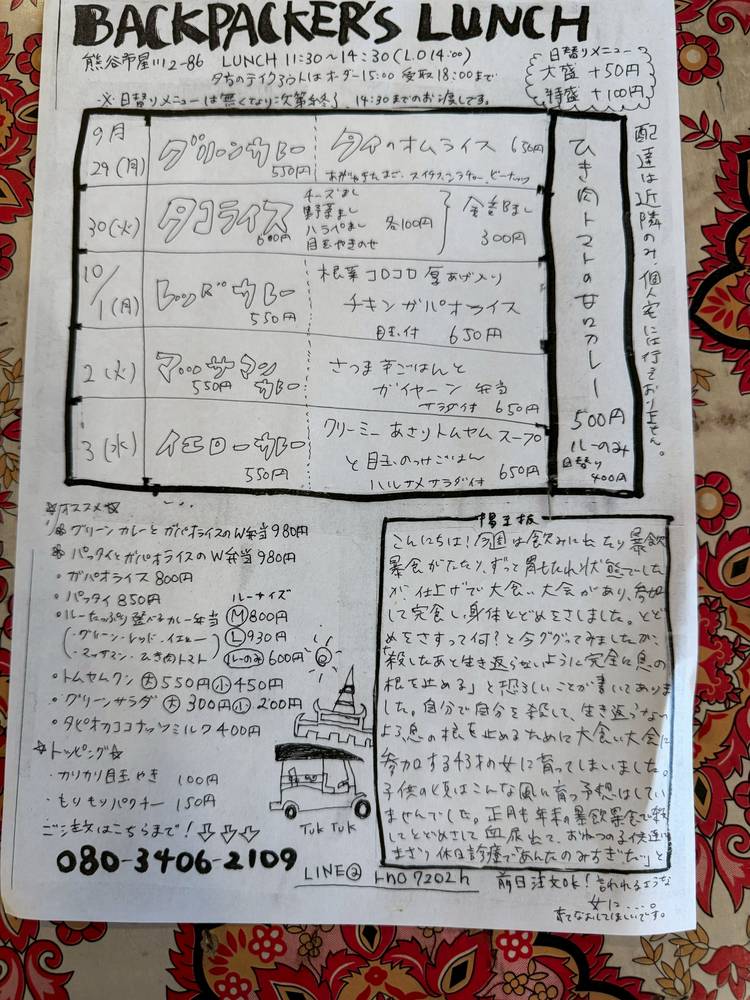 BACKPACKER'S LUNCH
熊谷市星川2-86 LUNCH 11:30〜14:30(L.O 14:00)
夕方のテイクアウトはオーダー15:00 受取18:00まで
※日替りメニューは無くなり次第終了 14:30までのお渡しです。
日替りメニュー
大盛 +50円
特盛 +100円
9月
29(月)
グリーンカレー
550円
タイのオムライス 650円
スイチリソース ピーナッツ
30(火)
タコライス
600円
チーズまし
野菜まし
ハラペまし
目玉やきのせ
各100円
全部まし
300円
10/1(月)
レッドカレー
550円
根菜コロコロ 厚あげ入り
チキンガパオライス
目玉付 650円
2(火)
マッサマンカレー
550円
さつま芋ごはんと
ガイヤーン 弁当
サラダ付 650円
3(水)
イエローカレー
550円
クリーミーあさりトムヤムスープ
と目玉のっけごはん
ハルサメサラダ付 650円
ひき肉トマトの甘口カレー
500円
ルーのみ
日替り
400円
配達は近隣のみ、個人宅には行っておりません。
☆オススメ☆
グリーンカレーとガパオライスのW弁当 980円
パッタイとガパオライスのW弁当 980円
・ガパオライス 800円
・パッタイ 850円
ルーサイズ
・ルーたっぷり選べるカレー弁当 Ⓜ800円
(・グリーン・レッド・イエロー
・マッサマン・ひき肉トマト)
Ⓛ930円
ルーのみ 600円
・トムヤムクン 大550円 小450円
・グリーンサラダ 大300円 小200円
・タピオカココナッツミルク 400円
☆トッピング☆
・カリカリ目玉やき 100円
・もりもりパクチー 150円
ご注文はこちらまで!
080-3406-2109
TUK TUK
LINE@
前日注文OK!
掲示板
こんにちは!今週は飲みに出たり暴飲
暴食がたたり、ずっと胃もたれ状態でした
が、仕上げで大食い大会があり、参加
して完食し、身体とどめをさしました。とど
めをさすって何?と今ググってみましたが、
殺したあと生き返らないように完全に息の
根を止める」と恐ろしいことが書いてありま
した。自分で自分を殺して、生き返らない
よう息の根を止めるために大食い大会に
参加する43才の女に育ってしまいました。
子供の頃はこんな風に育つ予想はしてい
ませんでした。正月も年末の暴飲暴食で殺
してとどめさして血尿出て、おねつの子供達に
まざり休日診療で「あんたのみすぎだ」と
言われるような
女に...。